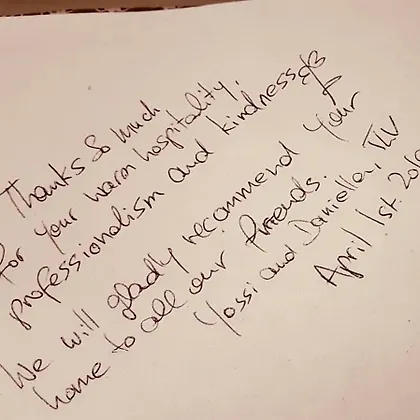 Thanks so much
for your warm hospitality,
professionalism and kindness
We will gladly recommend your
home to all our friends.
Yossi and Daniella, TLV
April 1st.